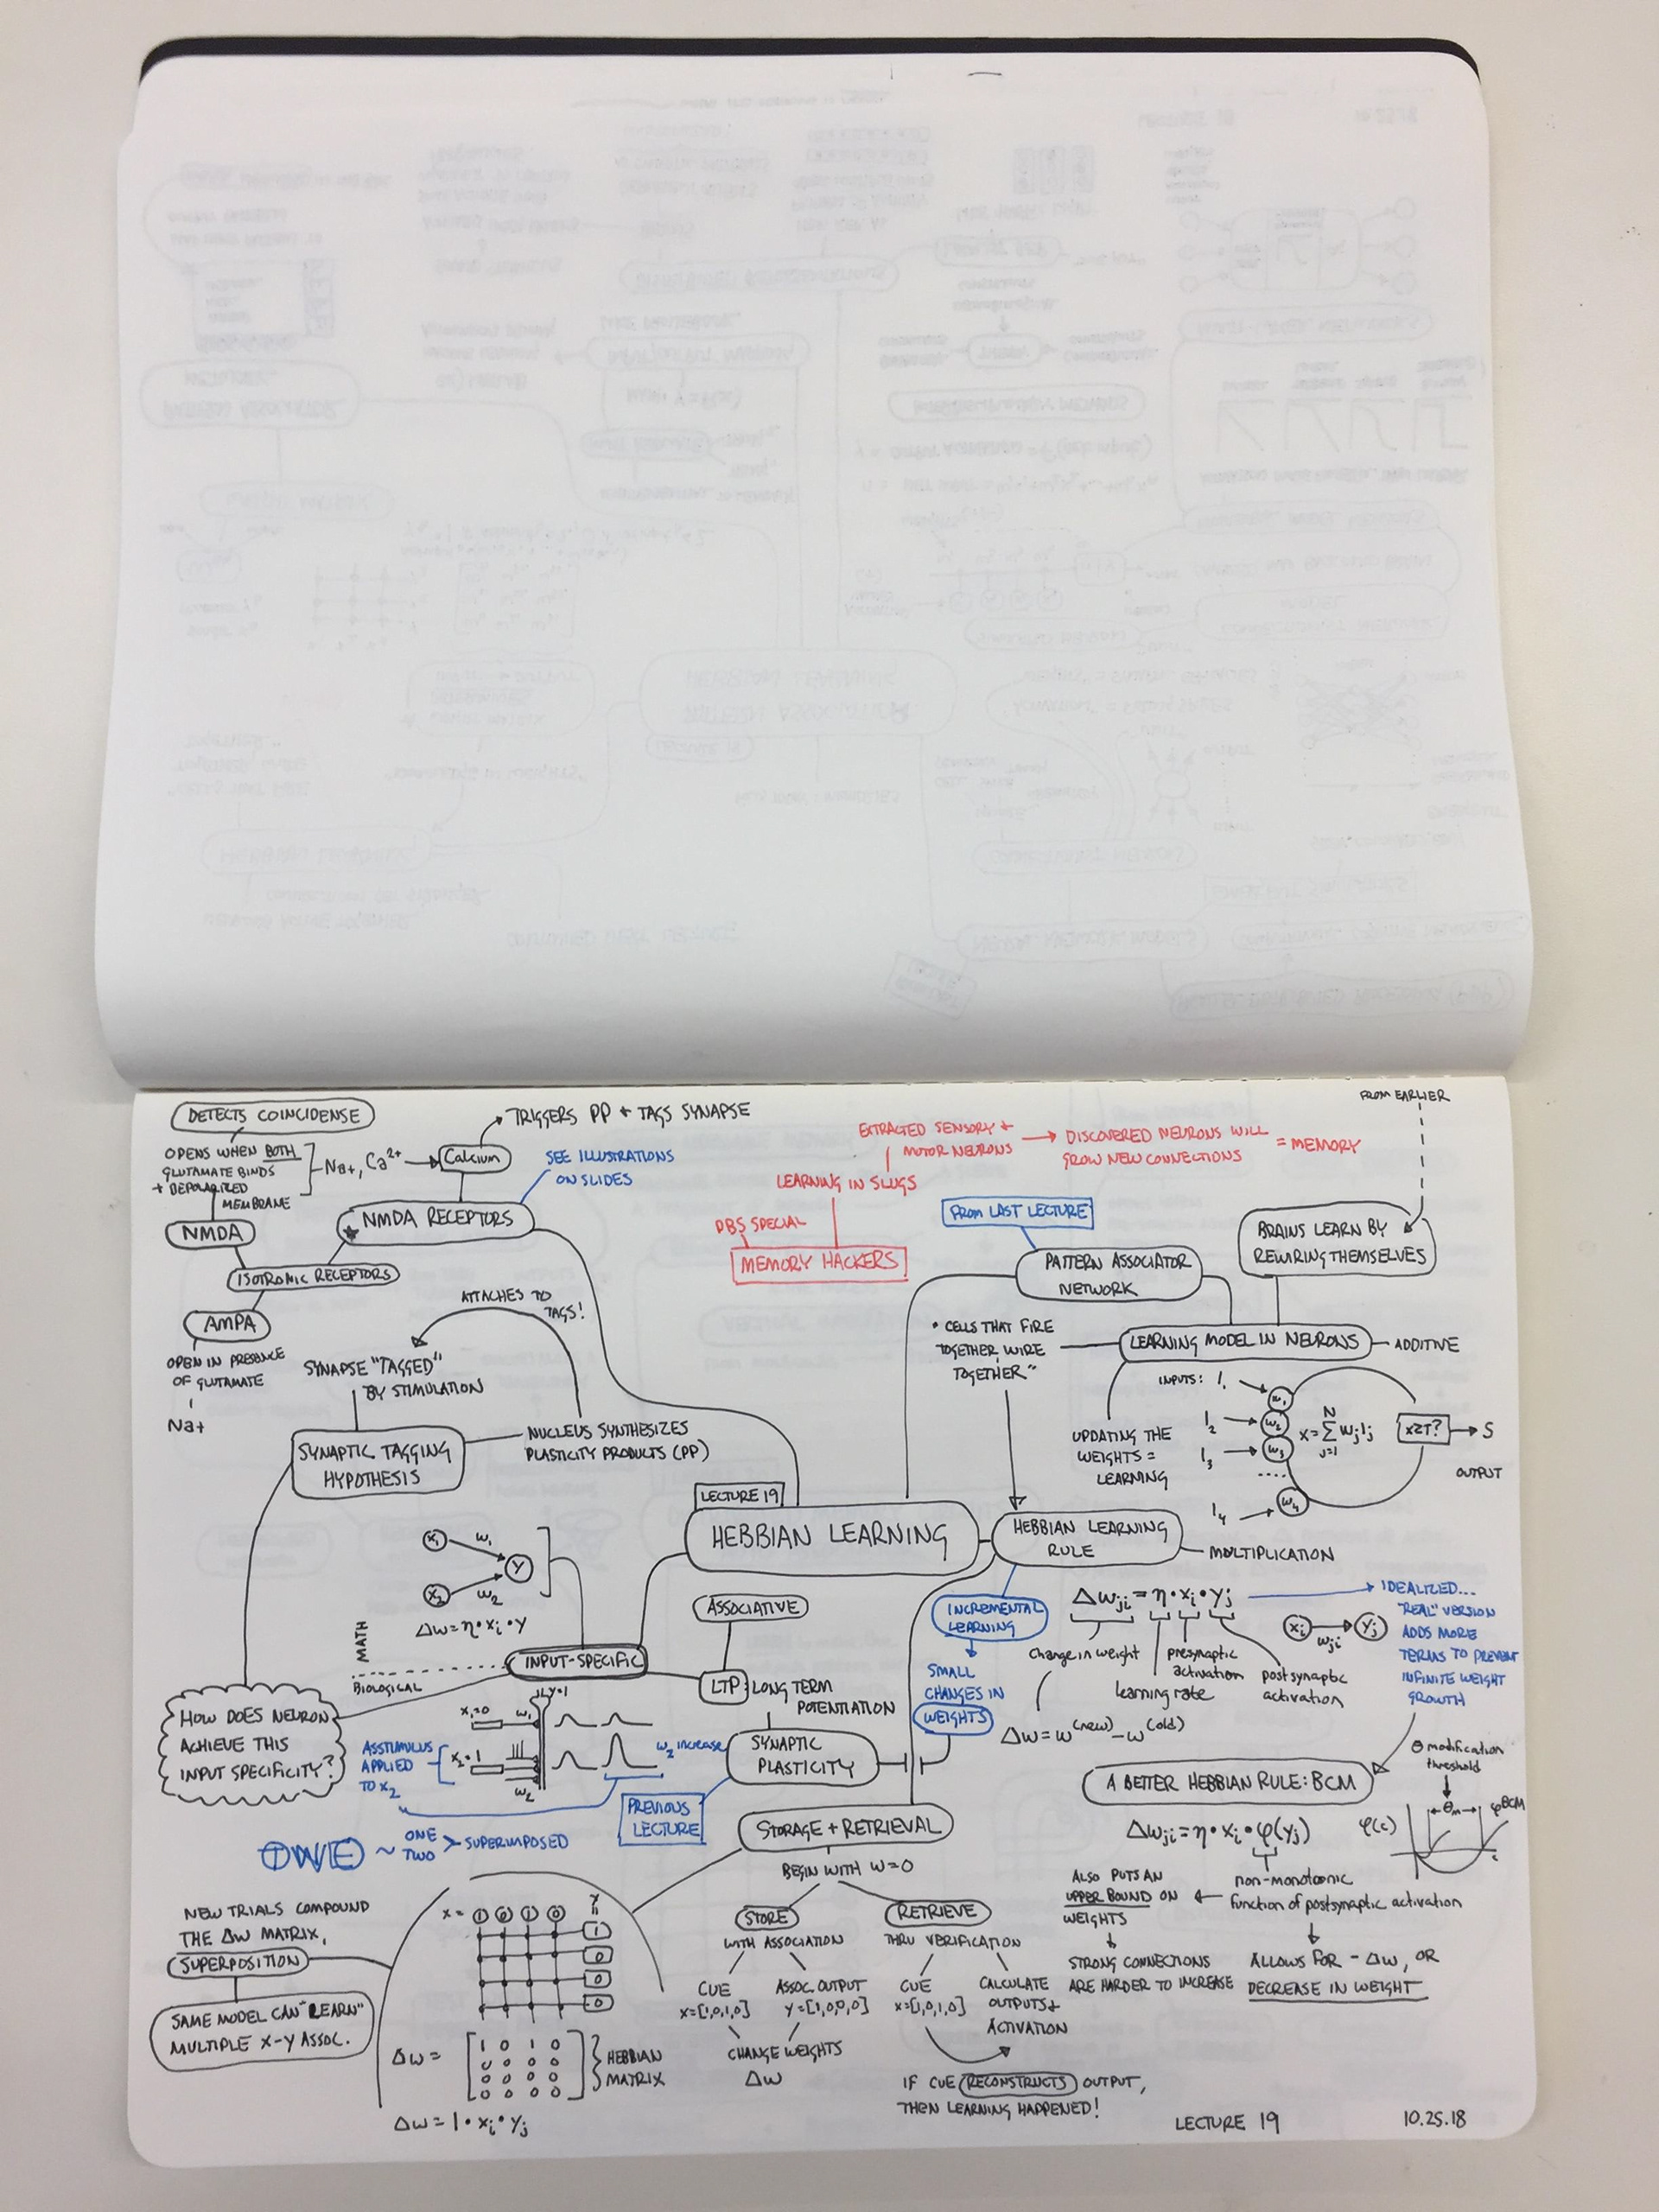 FROM EARLIER
DETECTS COINCIDENSE
OPENS WHEN BOTH
GLUTAMATE BINDS
+ DEPOLARIZED
MEMBRANE
Na+, Ca2+
Calcium
TRIGGERS PP + TAGS SYNAPSE
SEE ILLUSTRATIONS
ON SLIDES
NMDA
NMDA RECEPTORS
ISOTRONIC RECEPTORS
AMPA
OPEN IN PRESENCE
OF GLUTAMATE
Na+
ATTACHES TO
TAGS!
SYNAPSE "TAGGED"
BY STIMULATION
NUCLEUS SYNTHESIZES
PLASTICITY PRODUCTS (PP)
SYNAPTIC TAGGING
HYPOTHESIS
EXTRACTED SENSORY +
MOTOR NEURONS
DISCOVERED NEURONS WILL
GROW NEW CONNECTIONS
= MEMORY
LEARNING IN SLUGS
PBS SPECIAL
MEMORY HACKERS
FROM LAST LECTURE
PATTERN ASSOCIATOR
NETWORK
BRAINS LEARN BY
REWIRING THEMSELVES
"CELLS THAT FIRE
TOGETHER WIRE
TOGETHER"
LEARNING MODEL IN NEURONS
ADDITIVE
UPDATING THE
WEIGHTS =
LEARNING
INPUTS: I1
I2
I3
I4
w1
w2
w3
w4
x = Σ wj Ij
N
j=1
x≥T?
S
OUTPUT
LECTURE 19
HEBBIAN LEARNING
HEBBIAN LEARNING
RULE
MULTIPLICATION
x1
w1
Y
x2
w2
Δw = η·xi·y
MATH
BIOLOGICAL
INPUT-SPECIFIC
ASSOCIATIVE
LTP: LONG TERM
POTENTIATION
SYNAPTIC
PLASTICITY
HOW DOES NEURON
ACHIEVE THIS
INPUT SPECIFICITY?
ASSTIMULUS
APPLIED
TO x2
x1=0
w1
y=1
x2=1
w2
w2 increase
PREVIOUS
LECTURE
INCREMENTAL
LEARNING
SMALL
CHANGES IN
WEIGHTS
Δwji = η·xi·yj
change in weight
presynaptic
activation
learning rate
postsynaptic
activation
xi
wji
yj
Δw = w(new) - w(old)
IDEALIZED...
"REAL" VERSION
ADDS MORE
TERMS TO PREVENT
INFINITE WEIGHT
GROWTH
A BETTER HEBBIAN RULE: BCM
Δwji = η·xi·φ(yj)
θ modification
threshold
φ(c)
θm
φBCM
c
non-monotonic
function of postsynaptic activation
ALSO PUTS AN
UPPER BOUND ON
WEIGHTS
STRONG CONNECTIONS
ARE HARDER TO INCREASE
ALLOWS FOR -Δw, OR
DECREASE IN WEIGHT
ONE
TWO
SUPERIMPOSED
STORAGE + RETRIEVAL
BEGIN WITH W=0
STORE
WITH ASSOCIATION
CUE
x=[1,0,1,0]
ASSOC. OUTPUT
y=[1,0,0,0]
CHANGE WEIGHTS
Δw
RETRIEVE
THRU VERIFICATION
CUE
x=[1,0,1,0]
CALCULATE
OUTPUTS+
ACTIVATION
IF CUE RECONSTRUCTS OUTPUT,
THEN LEARNING HAPPENED!
NEW TRIALS COMPOUND
THE ΔW MATRIX,
SUPERPOSITION
SAME MODEL CAN "LEARN"
MULTIPLE X-Y ASSOC.
x = 1 0 1 0
y
=
1
0
0
0
Δw =
1 0 1 0
0 0 0 0
0 0 0 0
0 0 0 0
HEBBIAN
MATRIX
Δw = 1·xi·yj
LECTURE 19
10.25.18